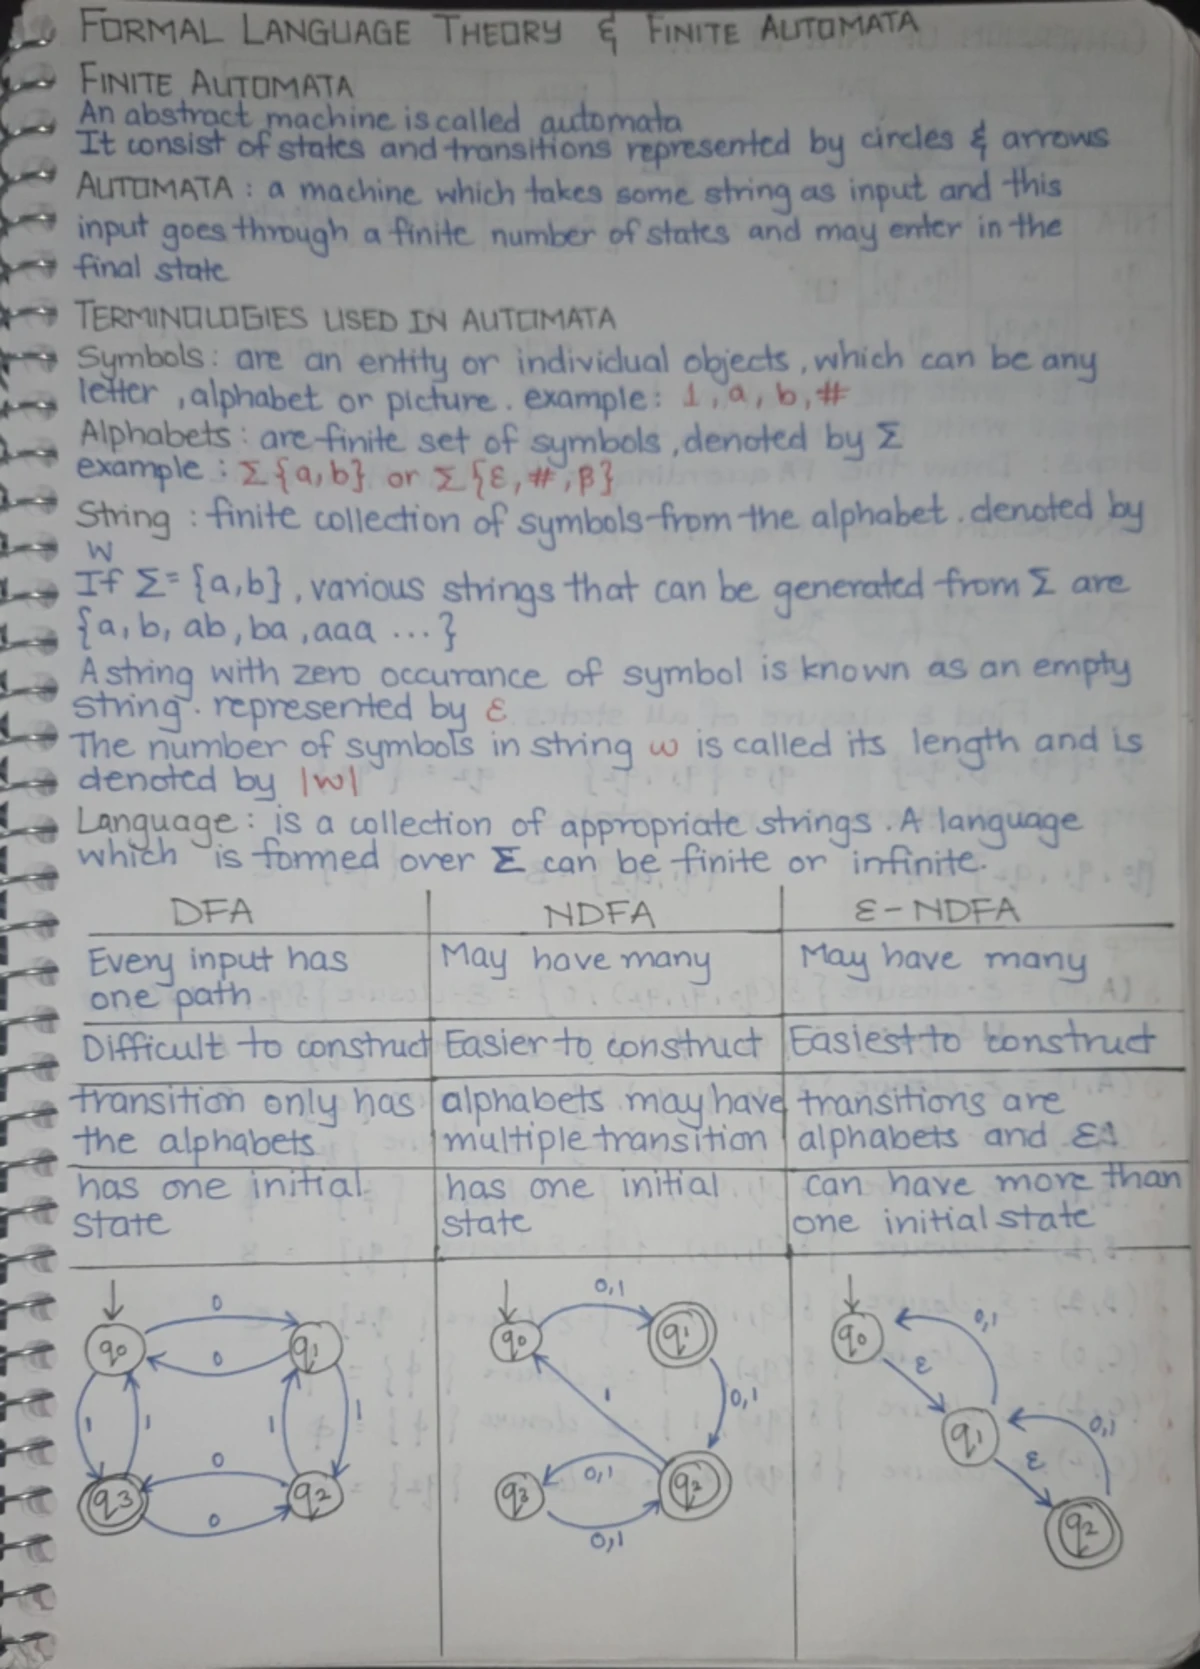 FORMAL LANGUAGE THEORY & FINITE AUTOMATA
FINITE AUTOMATA
An abstract machine is called automata
It consist of states and transitions represented by circles & arrows
AUTOMATA : a machine which takes some string as input and this
input goes through a finite number of states and may enter in the
final state
TERMINOLOGIES USED IN AUTOMATA
Symbols: are an entity or individual objects, which can be any
letter, alphabet or picture. example: 1, a, b, #
Alphabets: are finite set of symbols, denoted by Σ
example : Σ{a,b} or Σ{ε, #, β}
String : finite collection of symbols from the alphabet. denoted by
w
If Σ = {a,b}, various strings that can be generated from Σ are
{a, b, ab, ba, aaa ...}
A string with zero occurance of symbol is known as an empty
string. represented by ε
The number of symbols in string w is called its length and is
denoted by |w|
Language: is a collection of appropriate strings. A language
which is formed over Σ can be finite or infinite.
DFA NDFA ε-NDFA
Every input has May have many May have many
one path
Difficult to construct Easier to construct Easiest to construct
transition only has alphabets may have transitions are
the alphabets multiple transition alphabets and ε
has one initial has one initial can have more than
state state one initial state
0 0,1
q0 q1 q0 q1 q0 0,1
0 ε
1 1 1 1 1 0,1 q1 0,1
0 0,1 ε
q3 q2 q3 q2 q2
0 0,1